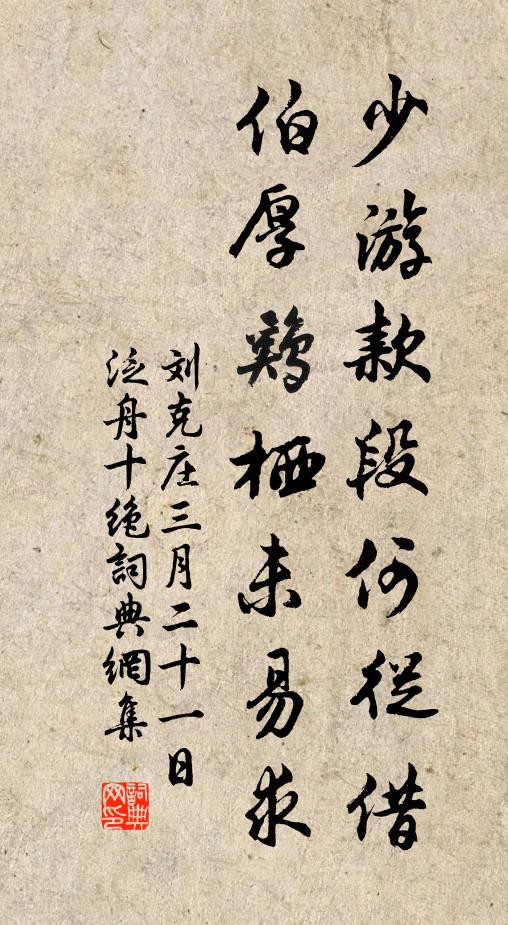 少游款段何從借
伯厚鷄栖未易求
刘克庄三月二十一日
泛舟十绝詞典網集
詞典
网印